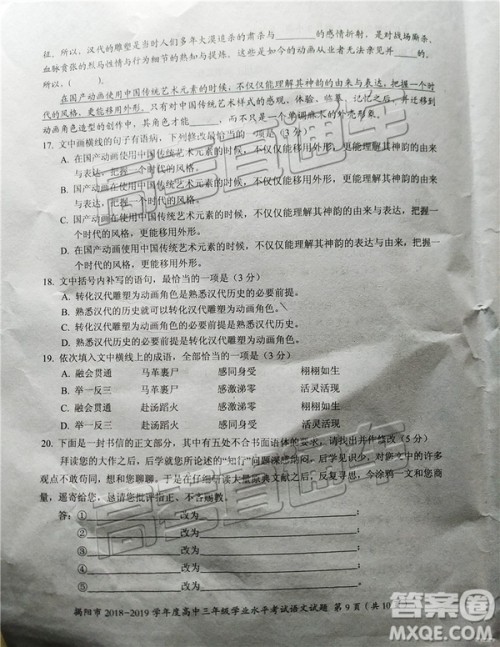 挂。所以，汉代的雕塑是当时人们多年大漠边亲的肃杀与______的感情折射，是对战场厮杀、
血脉贲张的烈马性情与行为细节的熟知与提炼。这些______的动画从业者无法亲见并______的。
所以，（　　）。
在国产动画使用中国传统艺术元素的时候，不仅仅能理解其神韵的由来与表达，把握一个时代的
风格，更能移用外形。只有对中国传统艺术样式的感观、体验、临摹、记忆之后，并迁移到
动画角色造型的创作中，其角色才能______，而不是一个单调麻木的外壳形象。
17. 文中画横线的句子有语病，下列修改最恰当的一项是（3 分）
A. 在国产动画使用中国传统艺术元素的时候，不仅仅能移用外形，更能理解其神韵的由来
与表达，把握一个时代的风格。
B. 在国产动画使用中国传统艺术元素的时候，不仅仅能理解其神韵的由来与表达，把握一个
时代的风格，更能移用外形。
C. 在国产动画使用中国传统艺术元素的时候，不仅仅能理解其神韵的由来与表达，把握一
个时代的风格，更能移用外形。
D. 在国产动画使用中国传统艺术元素的时候，不仅仅能理解其神韵的表达与由来，把握一
个时代的风格，更能移用外形。
18. 文中括号内补写的语句，最恰当的一项是（3 分）
A. 转化汉代雕塑为动画角色是熟悉汉代历史的必要前提。
B. 熟悉汉代历史就可以转化汉代雕塑为动画角色。
C. 熟悉汉代历史是转化汉代雕塑为动画角色的必要前提。
D. 转化汉代雕塑为动画角色就可以熟悉汉代历史。
19. 依次填入文中横线上的成语，全部恰当的一项是（3 分）
A. 融会贯通 马革裹尸 感同身受 栩栩如生
B. 举一反三 赴汤蹈火 感激涕零 活灵活现
C. 融会贯通 马革裹尸 感激涕零 栩栩如生
D. 举一反三 赴汤蹈火 感同身受 活灵活现
20. 下面是一封书信的正文部分，其中有五处不合书面语体的要求，请找出并作修改（5 分）
拜读您的大作之后，后学就您所论述的“知行”问题深感纳闷，虽才疏学浅，对您文中的
观点不敢苟同，想和您聊聊，于是在仔细阅读大量原典文献之后，反复思量，今涂鸦一文已
量，邀寄给您，恳请您批评指正、不吝赐教。
答：①______改为______
②______改为______
③______改为______
④______改为______
⑤______改为______
揭阳市 2018~2019 学年度高中三年级学业水平考试语文试题 第 9 页（共 10
高考直通车
高考直通车